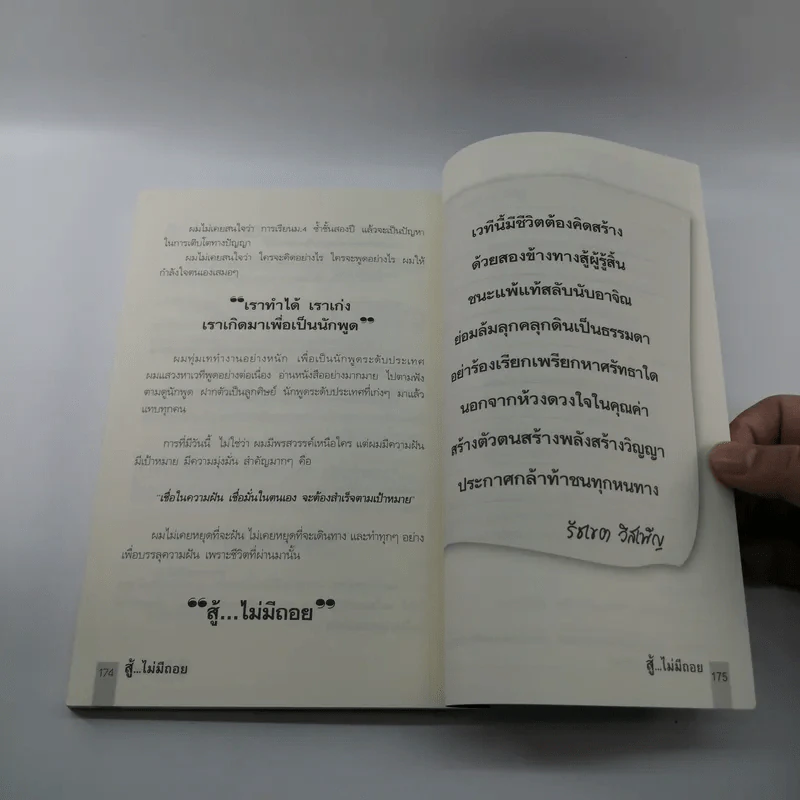 ผมไม่เคยสนใจว่า การเรียนม.4 ซ้ำชั้นสองปี แล้วจะเป็นปัญหา
ในการเติบโตทางปัญญา
ผมไม่เคยสนใจว่า ใครจะคิดอย่างไร ใครจะพูดอย่างไร ผมให้
กำลังใจตนเองเสมอๆ
“เราทำได้ เราเก่ง
เราเกิดมาเพื่อเป็นนักพูด”
ผมทุ่มเททำงานอย่างหนัก เพื่อเป็นนักพูดระดับประเทศ
ผมแสวงหาเวทีพูดอย่างต่อเนื่อง อ่านหนังสืออย่างมากมาย ไปตามฟัง
ตามดูนักพูด ฝากตัวเป็นลูกศิษย์ นักพูดระดับประเทศที่เก่งๆ มาแล้ว
แทบทุกคน
การที่มีวันนี้ ไม่ใช่ว่า ผมมีพรสวรรค์เหนือใคร แต่ผมมีความฝัน
มีเป้าหมาย มีความมุ่งมั่น สำคัญมากๆ คือ
"เชื่อในความฝัน เชื่อมั่นในตนเอง จะต้องสำเร็จตามเป้าหมาย"
ผมไม่เคยหยุดที่จะฝัน ไม่เคยหยุดที่จะเดินทาง และทำทุกๆ อย่าง
เพื่อบรรลุความฝัน เพราะชีวิตที่ผ่านมานั้น
“สู้...ไม่มีถอย”
174 สู้...ไม่มีถอย
เวทีนี้มีชีวิตต้องคิดสร้าง
ด้วยสองข้างทางสู้ผู้รู้สิ้น
ชนะแพ้แท้สลับนับอาจิณ
ย่อมล้มลุกคลุกดินเป็นธรรมดา
อย่าร้องเรียกเพรียกหาศรัทธาใด
นอกจากห้วงดวงใจในคุณค่า
สร้างตัวตนสร้างพลังสร้างวิญญา
ประกาศกล้าท้าชนทุกหนทาง
รัชเขต วีสเพ็ญ
สู้...ไม่มีถอย 175